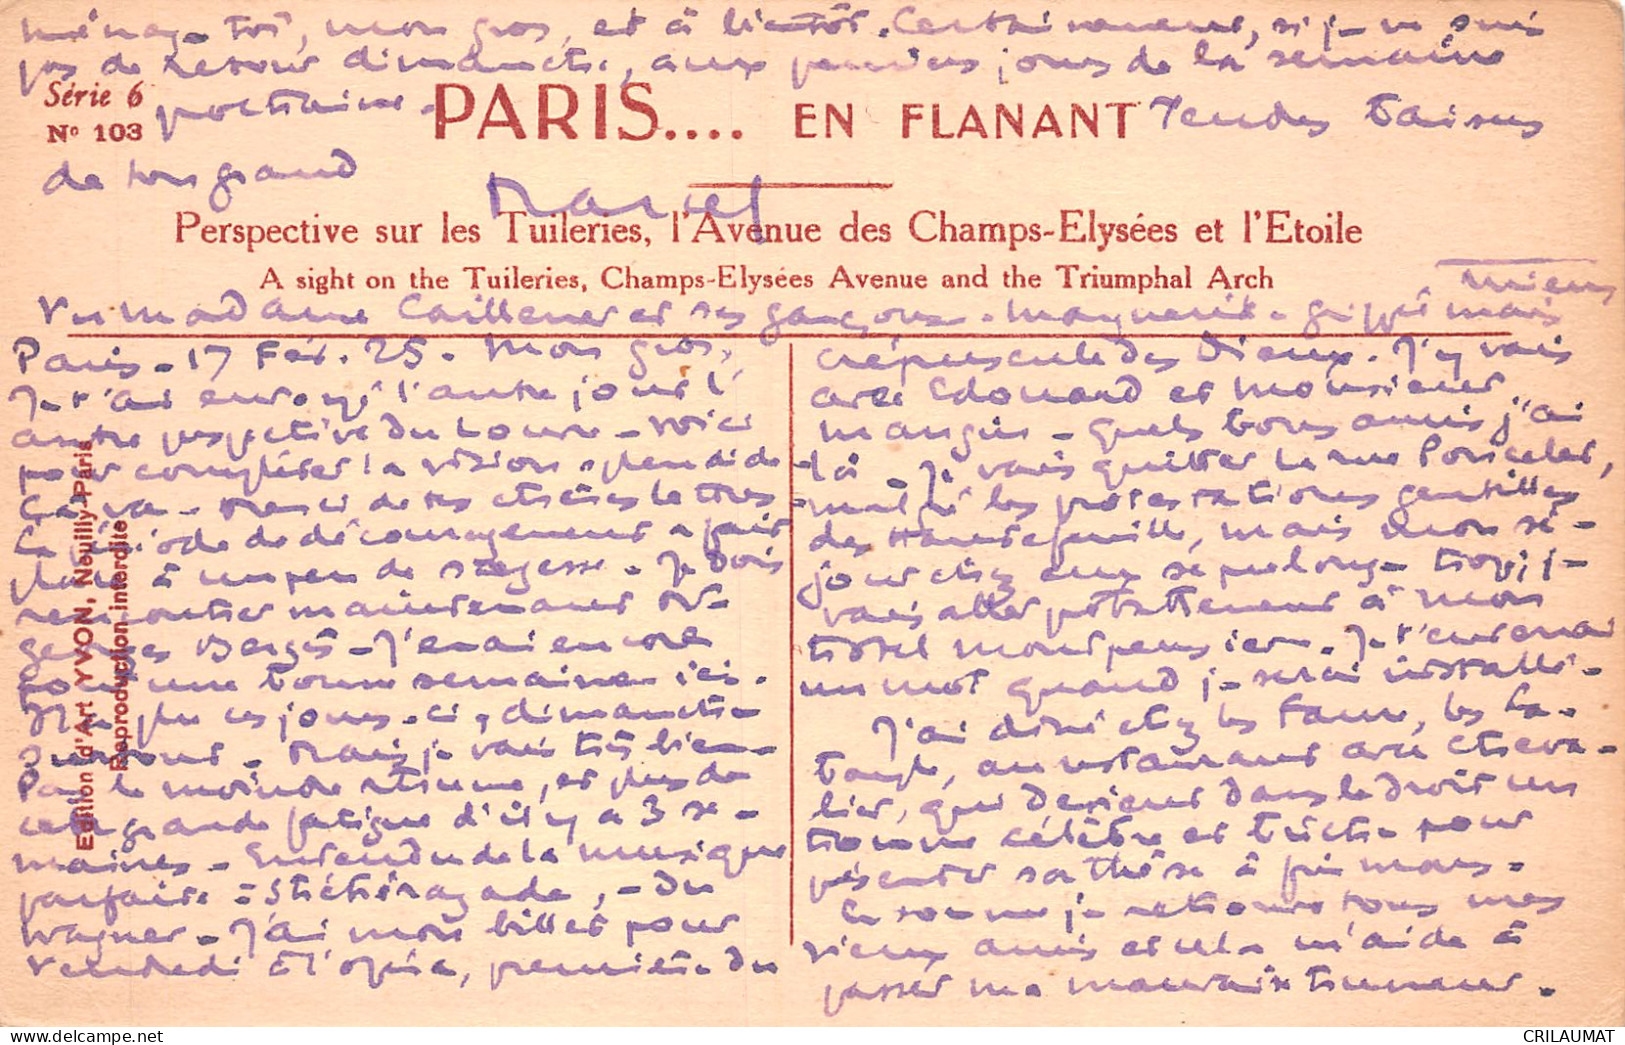 ménage-toi, mon gros, et à bientôt. Certainement, si je ne suis
pas de retour dimanche, aux premiers jours de la semaine
Série 6
N° 103
prochaine.
PARIS.... EN FLANANT
Tendres baisers
de ton grand
Marcel
Perspective sur les Tuileries, l'Avenue des Champs-Elysées et l'Etoile
A sight on the Tuileries, Champs-Elysées Avenue and the Triumphal Arch
Vu madame et ses garçons. Marguerite grippée mais
mieux
Paris - 17 Fév. 25. Mon gros,
Je t'ai envoyé l'autre jour l'
autre perspective du Louvre - voici
pour compléter la vision splendide
Ça va - Merci de tes chères lettres
La période de découragement a fait
place à un peu de sagesse. Je dois
rencontrer maintenant
Georges Bergès - J'en ai encore
pour une bonne semaine ici.
ces jours-ci, dimanche
surtout. Mais je vais très bien -
Pas le moindre rhume, et plus de
cette grande fatigue d'il y a 3 se-
maines - Entendu de la musique
parfaite = Shéhérazade, - du
Wagner - J'ai mon billet pour
Vendredi à l'opéra, première du
crépuscule des Dieux. J'y vais
avec Edouard et Monsieur
Mangin - quels bons amis j'ai
là - Je vais quitter la rue Poncelet,
malgré les protestations gentilles
des Hautefeuille, mais mon sé-
jour chez eux se prolonge trop, je
vais aller probablement à mon
hôtel Montpensier. Je t'enverrai
un mot quand je serai installé.
J'ai dîné chez les Faure, les La-
bayle, au restaurant avec Cheva-
lier, qui devient dans le droit un
homme célèbre et bûche pour
présenter sa thèse à fin mars.
En somme je retrouve tous mes
vieux amis et cela m'aide à
passer ma mauvaise humeur.
Edition d'Art YVON, Neuilly-Paris
Reproduction interdite
CRILAUMAT